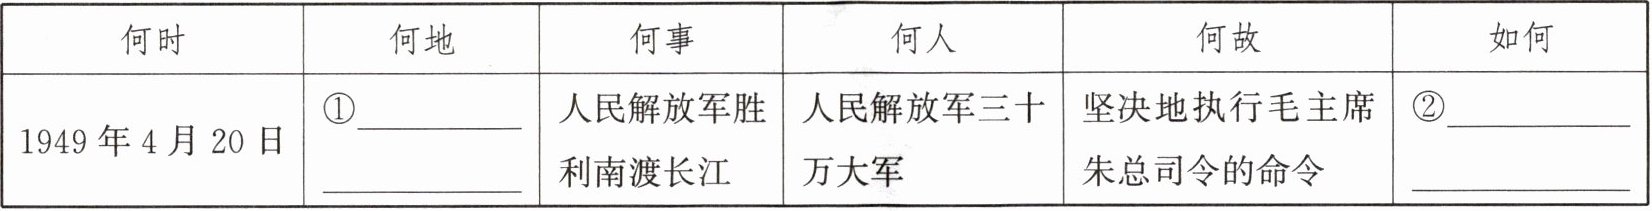 何时 何地 何事 何人 何故 如何
1949年4月20日
①
人民解放军胜
利南渡长江
人民解放军三十
万大军
坚决地执行毛主席
朱总司令的命令
②